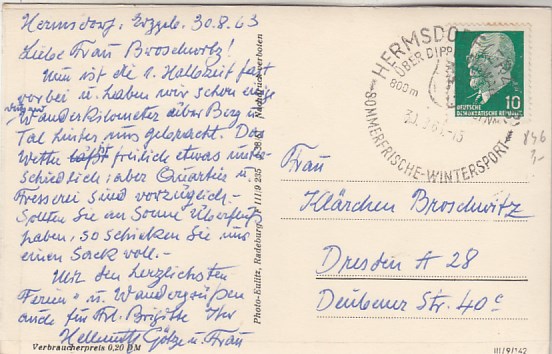 Hermsdorf, Erzgeb. 30.8.63
Liebe Frau Broschwitz!
Nun ist die 1. Halbzeit fast
vorbei u. haben wir schon einige
Wanderkilometer über Berg u.
Tal hinter uns gebracht. Das
Wetter läßt freilich etwas unter-
schiedlich, aber Quartier u.
Fresserei sind vorzüglich.
Sollten Sie an Sonne Überfluß
haben, so schicken Sie uns
einen Sack voll.-
Mit den herzlichsten
Ferien- u. Wandergrüßen
auch für Frl. Brigitte Ihr
Hellmuth Götze u. Frau
Verbraucherpreis 0,20 DM
Photo-Eulitz, Radeburg III/9 235 Nachdruck verboten
HERMSDORF
ÜBER DIPP
800 m
SOMMERFRISCHE-WINTERSPORT
DEUTSCHE
DEMOKRATISCHE REPUBLIK
10
846
3,-
Frau
Klärchen Broschwitz
Dresden A 28
Deubener Str. 40c
III/9/142